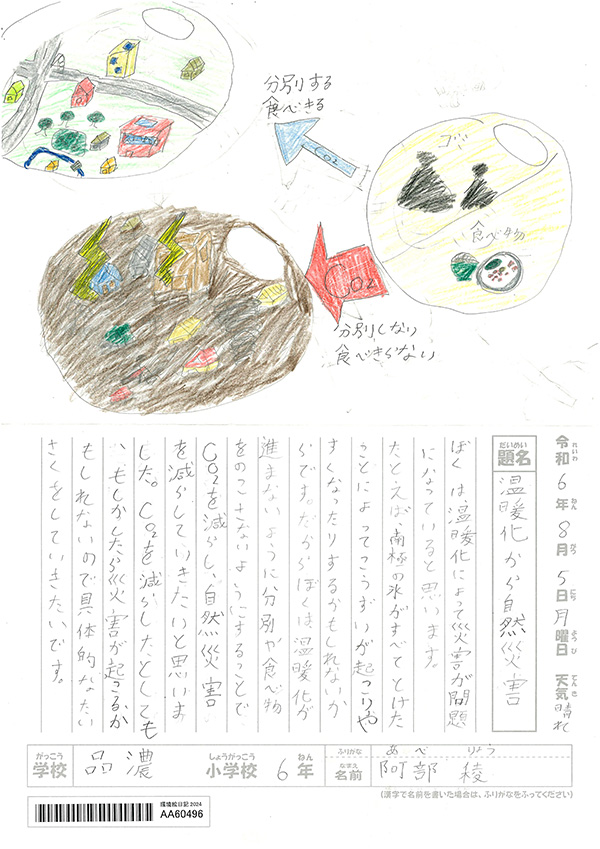 分別する
食べきる
CO2
ゴミ
食べ物
CO2
分別しない
食べきらない
令和6年8月5日月曜日 天気 晴れ
れいわ ねん がつ にち ようび てんき
だいめい
題名
温暖化から自然災害
ぼくは、温暖化によって災害が問題
になっていると思います。
たとえば、南極の氷がすべてとけた
ことによってこうずいが起こりや
すくなったりするかもしれないか
らです。だからぼくは、温暖化が
進まないように分別や食べ物
をのこさないようにすることで
CO2を減らし、自然災害
を減らしていきたいと思いま
した。CO2を減らしたとしても
、もしかしたら災害が起こるか
もしれないので具体的なたい
さくをしていきたいです。
がっこう
学校
品濃
しょうがっこう
小学校
6年
ねん
ふりがな
あべ りょう
なまえ
名前
阿部 稜
(漢字で名前を書いた場合は、ふりがなをふってください)
環境絵日記2024
AA60496